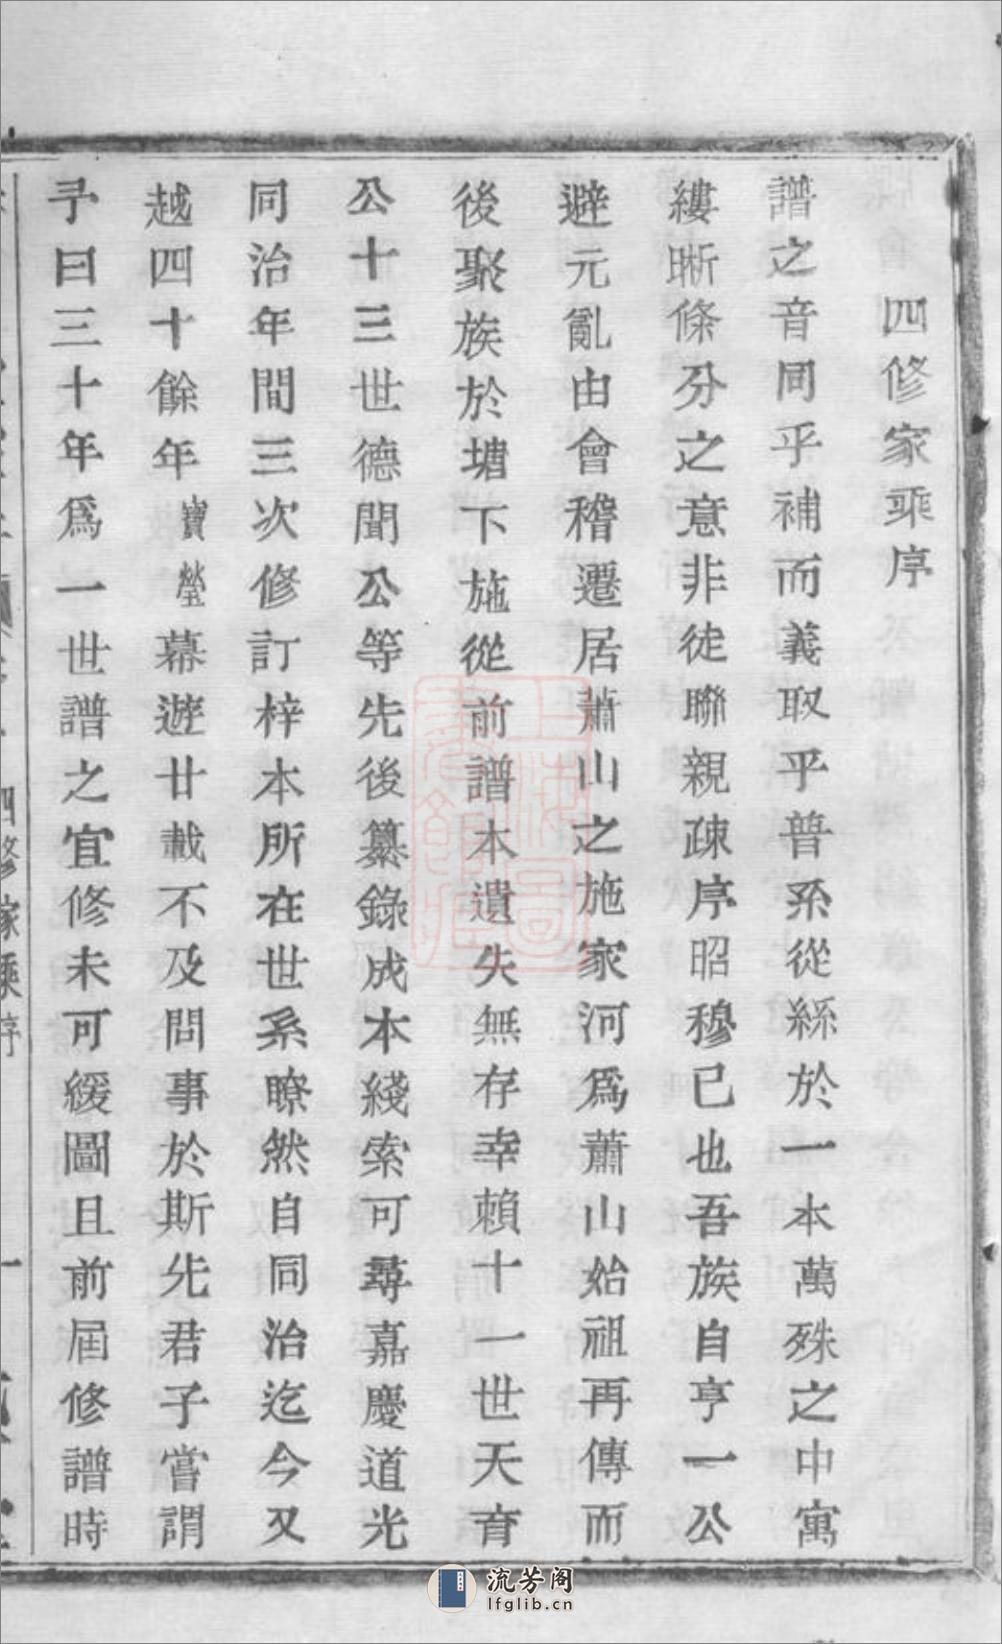 四修家乘序
譜之音同乎補而義取乎普系從絲於一本萬殊之中寓
縷晰條分之意非徒聯親疎序昭穆已也吾族自亨一公
避元亂由會稽遷居蕭山之施家河為蕭山始祖再傳而
後聚族於塘下施從前譜本遺失無存幸賴十一世天育
公十三世德聞公等先後纂錄成本綫索可尋嘉慶道光
同治年間三次修訂梓本所在世系瞭然自同治迄今又
越四十餘年寶瑩幕遊廿載不及問事於斯先君子嘗謂
予曰三十年為一世譜之宜修未可緩圖且前屆修譜時
四修家乘序
一
流芳阁
lfglib.cn